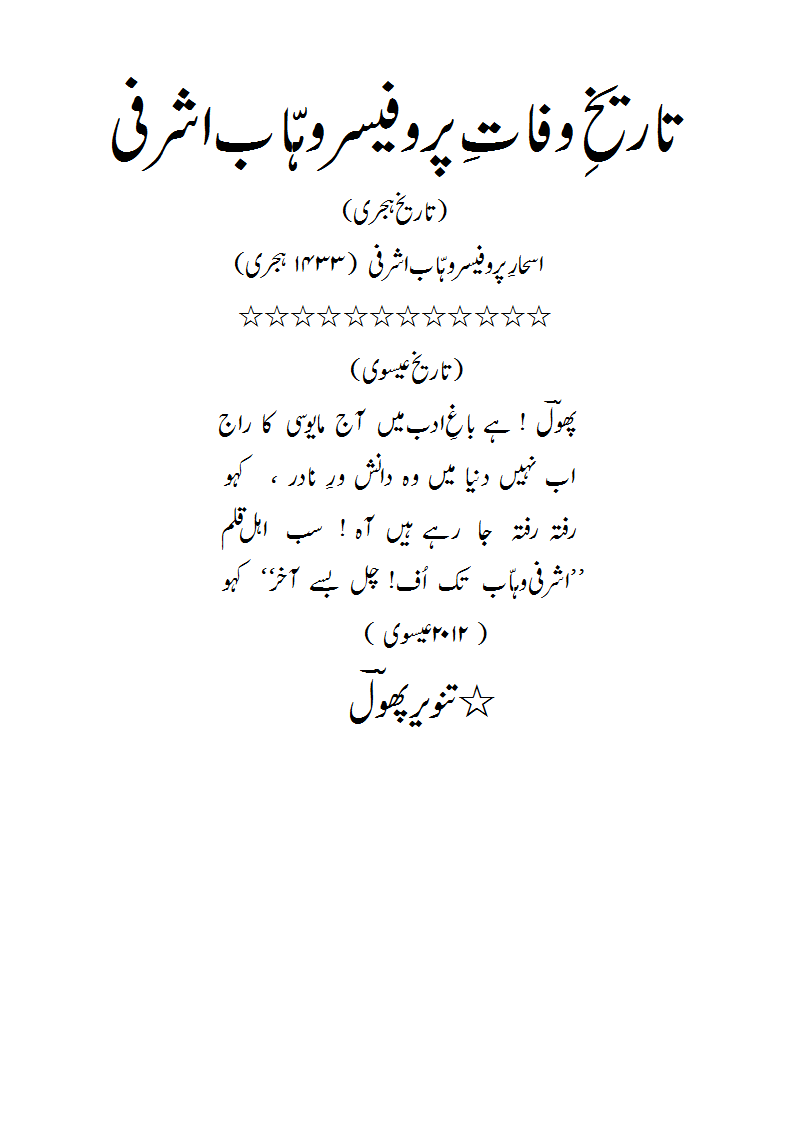 تاریخِ وفاتِ پروفیسر وہّاب اشرفی
(تاریخ ہجری)
اسحارِ پروفیسر وہّاب اشرفی (۱۴۳۳ ہجری)
☆☆☆☆☆☆☆☆☆☆☆☆
(تاریخ عیسوی)
پھولؔ ! ہے باغِ ادب میں آج مایوسی کا راج
اب نہیں دنیا میں وہ دانش ورِ نادر ، کہو
رفتہ رفتہ جا رہے ہیں آہ ! سب اہل قلم
’’اشرفی وہّاب تک اُف! چل بسے آخر‘‘ کہو
( ۲۰۱۲عیسوی )
☆تنویر پھولؔ